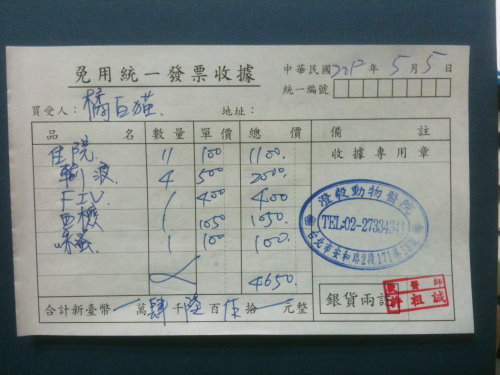 免用統一發票收據
中華民國2012年5月5日
統一編號
買受人：橘白貓 地址：
品名 數量 單價 總價 備註
住院 11 100 1100.
輸液 4 500 2000.
FIV 1 400 400
血機 1 1050 1050.
除蚤 1 100 100.
4650.
收據專用章
澄毅動物醫院
TEL:02-27334341
台北市安和路2段171巷
合計新臺幣 萬肆千陸百伍拾元整
銀貨兩訖
獸醫師
許祖誠